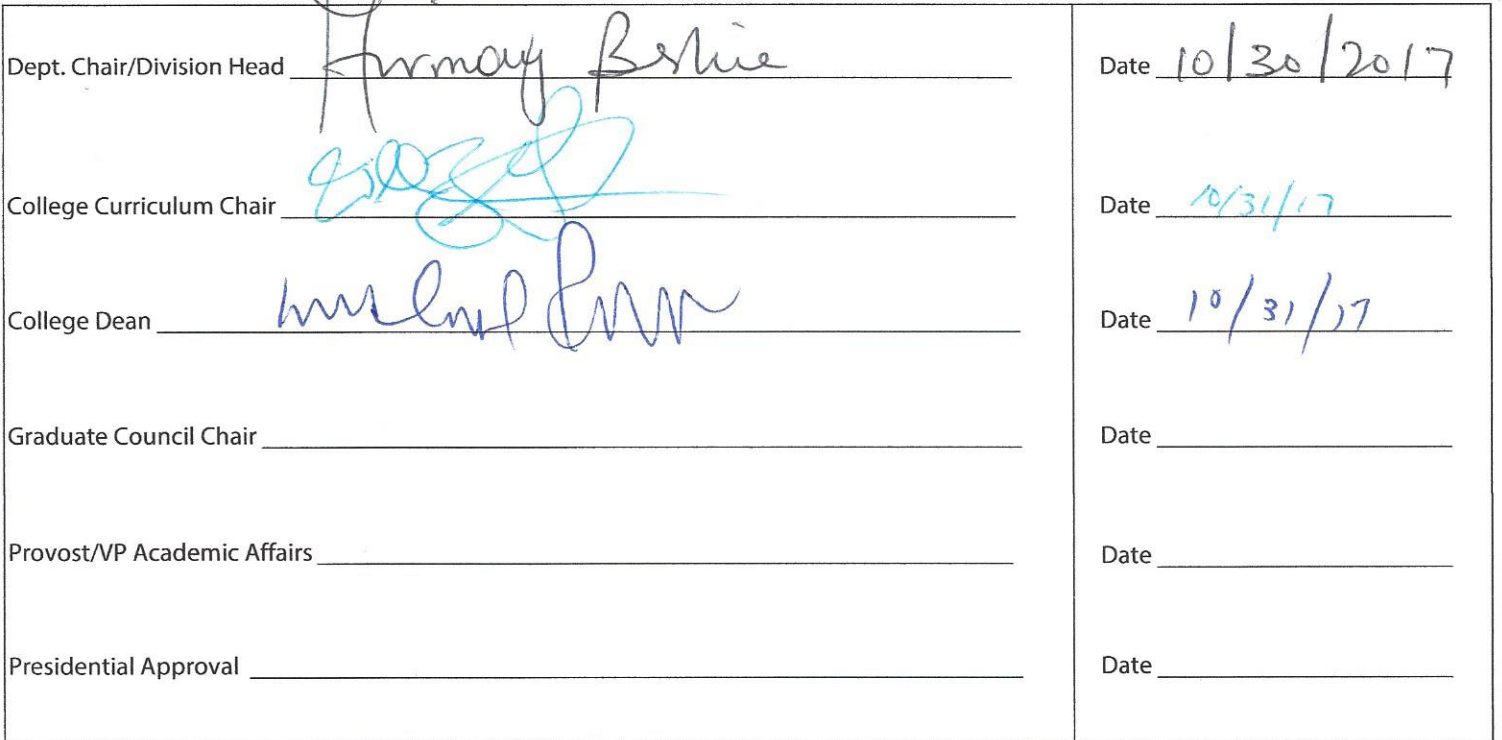 Dept. Chair/Division Head Date 10/30/2017
College Curriculum Chair Date 10/31/17
College Dean Date 10/31/17
Graduate Council Chair Date
Provost/VP Academic Affairs Date
Presidential Approval Date